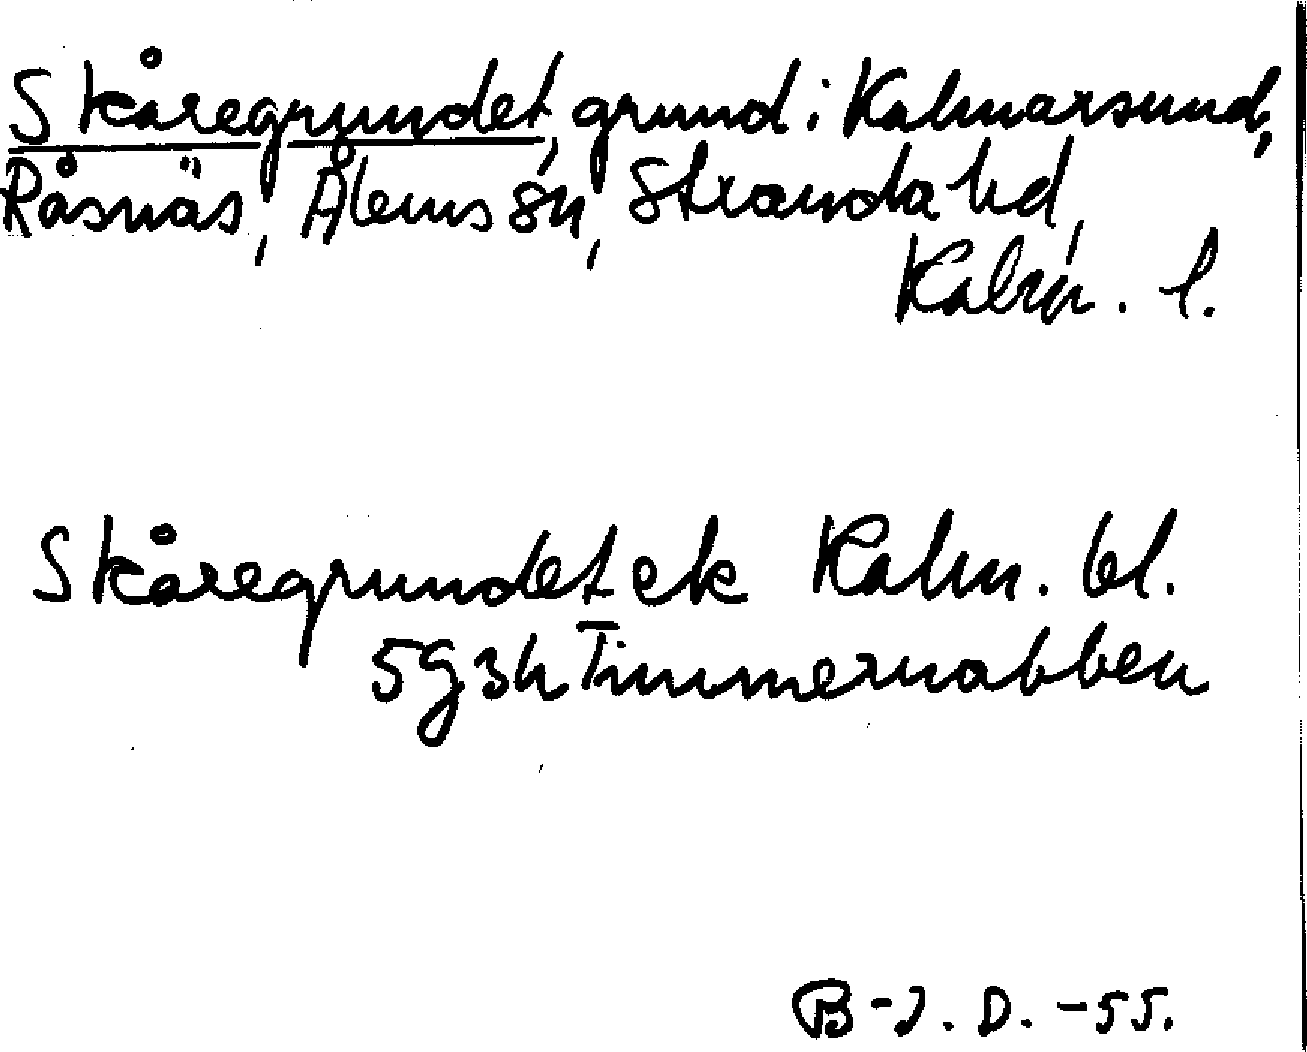 Skåregrundet, grund i Kalmarsund,
Råsnäs, Ålems sn, Stranda hd,
Kalm. l.
Skåregrundet ek Kalm. bl.
5g3h Timmernabben
B-J. D. -55.